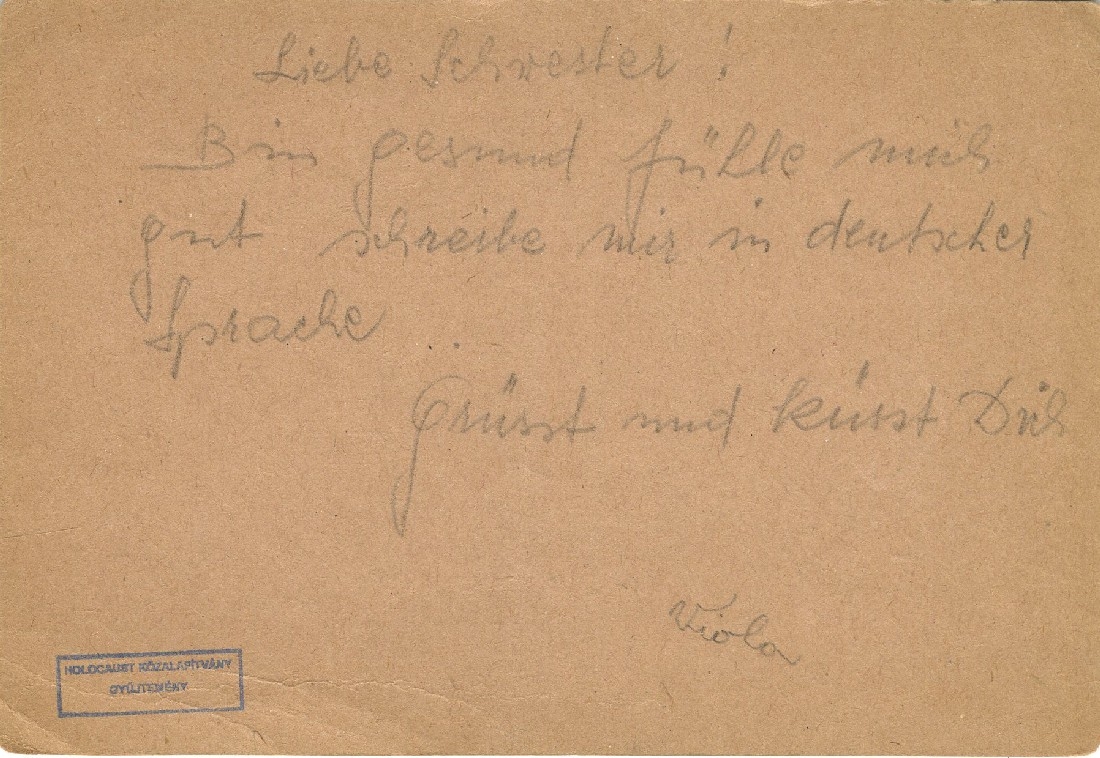 Liebe Schwester !
Bin gesund fühle mich
gut schreibe mir in deutscher
Sprache .
Grüsst und küsst Dich
Viola
HOLOCAUST KÖZALAPÍTVÁNY
GYŰJTEMÉNY